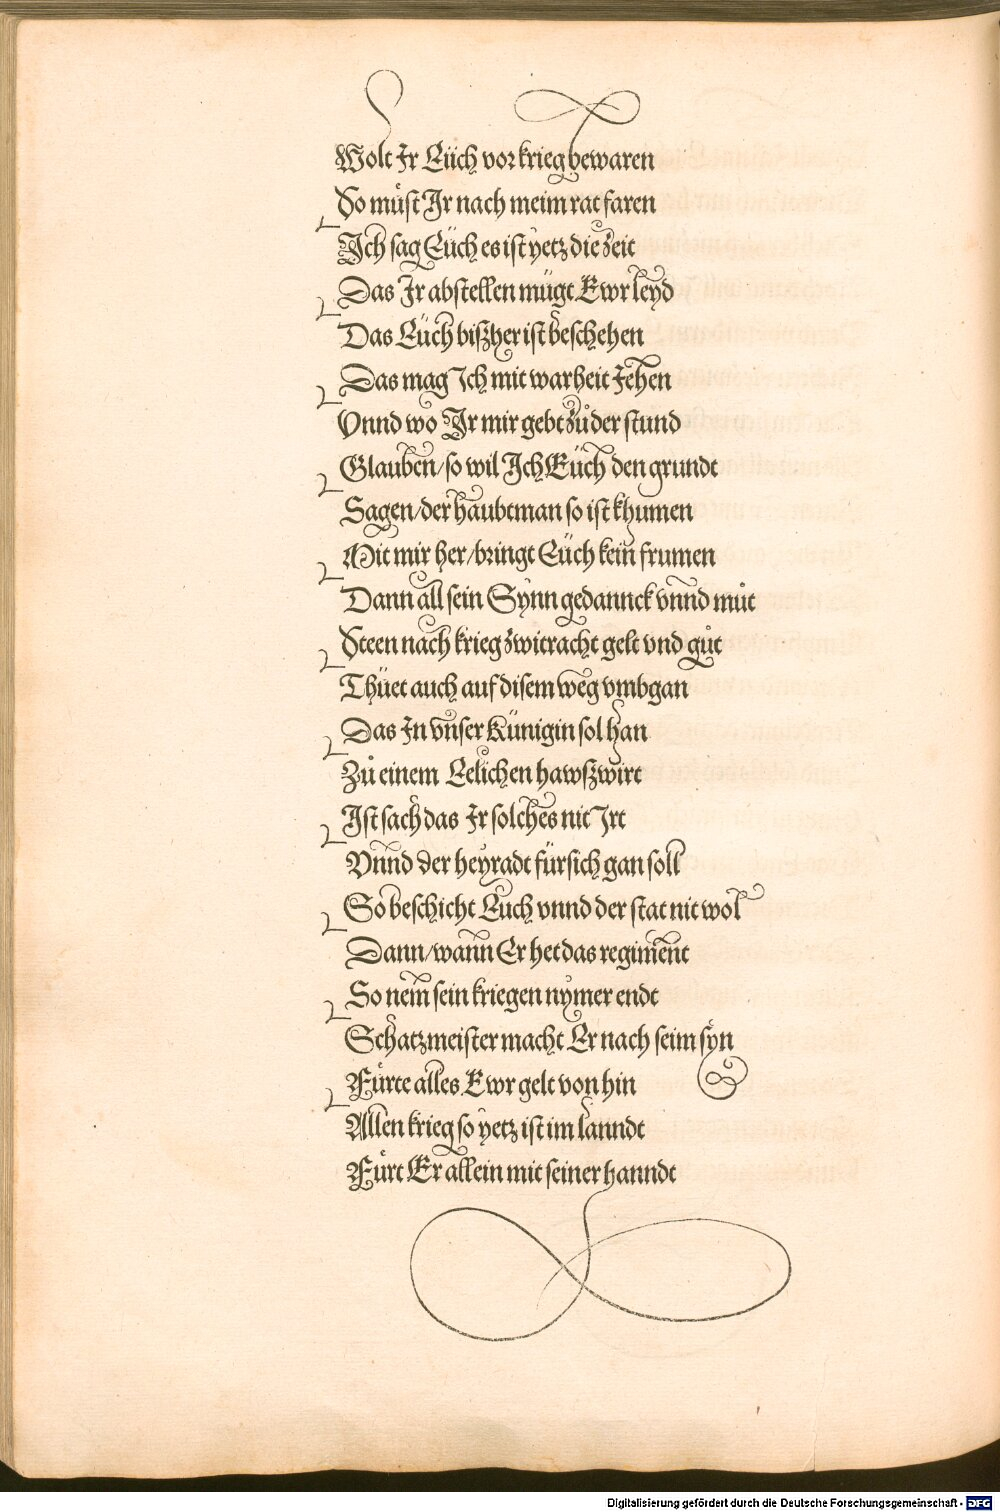 Wolt Ir Eüch vor krieg bewaren
So müst Ir nach meim rat faren
Ich sag Eüch es ist yetz die zeit
Das Ir abstellen mügt Ewr leyd
Das Eüch biszher ist beschehen
Das mag Ich mit warheit Jehen
Vnnd wo Ir mir gebt zůder stund
Glauben/so wil Ich Eüch den grundt
Sagen/der haubtman so ist khumen
Mit mir her/bringt Eüch kein frumen
Dann all sein Synn gedannck vnnd můt
Steen nach krieg zwitracht gelt vnd gůt
Thüet auch auf disem weg vmbgan
Das In vnser Künigin sol han
Zů einem Eelichen hawszwirt
Ist sach das Ir solches nit Irt
Vnnd der heyradt fürsich gan soll
So beschicht Euch vnnd der stat nit wol
Dann/wann Er het das regiment
So nem sein kriegen nymer endt
Schatzmeister macht Er nach seim syn
Fürte alles Ewr gelt von hin
Allen krieg so yetz ist im lanndt
Fürt Er allein mit seiner hanndt
Digitalisierung gefördert durch die Deutsche Forschungsgemeinschaft - DFG